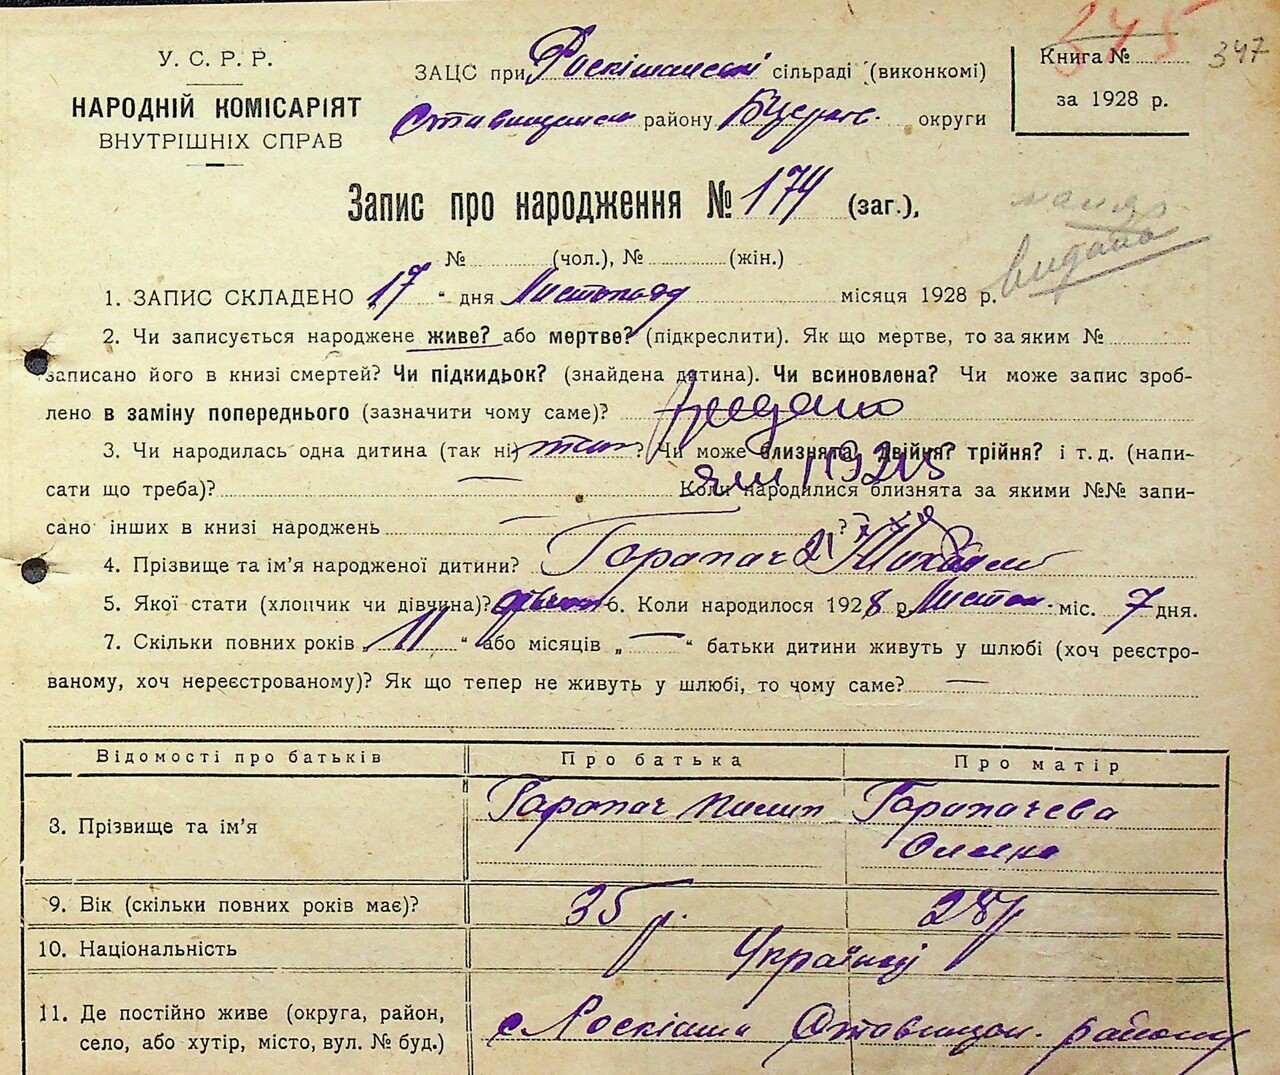 345
347
У. С. Р. Р.
НАРОДНІЙ КОМІСАРІЯТ
ВНУТРІШНІХ СПРАВ
ЗАЦС при сільраді (виконкомі)
району округи
Книга №
за 1928 р.
Запис про народження № 174 (заг.),
№ (чол.), № (жін.)
видано
1. ЗАПИС СКЛАДЕНО „17“ дня Листопада місяця 1928 р.
2. Чи записується народжене живе? або мертве? (підкреслити). Як що мертве, то за яким №
записано його в книзі смертей? Чи підкидьок? (знайдена дитина). Чи всиновлена? Чи може запис зроб-
лено в заміну попереднього (зазначити чому саме)?
3. Чи народилась одна дитина (так ні) так? Чи може близнята? двійня? трійня? і т. д. (напи-
сати що треба)? — Коли народилися близнята за якими №№ запи-
сано інших в книзі народжень — ?
4. Прізвище та ім'я народженої дитини? Гарапач
5. Якої стати (хлопчик чи дівчина)? 6. Коли народилося 1928 р. Листоп. міс. 7 дня.
7. Скільки повних років „11“ або місяців „—“ батьки дитини живуть у шлюбі (хоч реєстро-
ваному, хоч нереєстрованому)? Як що тепер не живуть у шлюбі, то чому саме? —
Відомості про батьків Про батька Про матір
3. Прізвище та ім'я Гарапач Пилип Гарапачева
Олена
9. Вік (скільки повних років має)? 35 р. 28 р.
10. Національність Українці
11. Де постійно живе (округа, район,
село, або хутір, місто, вул. № буд.) с. району